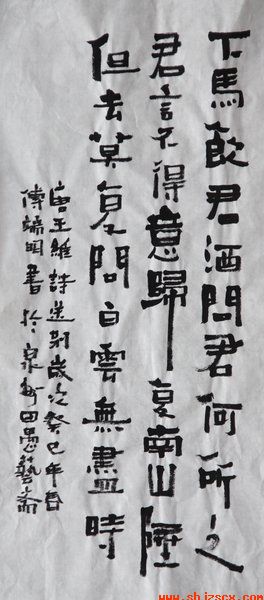 下馬飲君酒問君何所之
君言不得意歸复南山陲
但去莫复問白雲無盡時
唐王維詩送别歲次癸巳年春
傅端明書於泉州田愚藝斋
www.shjzscx.com